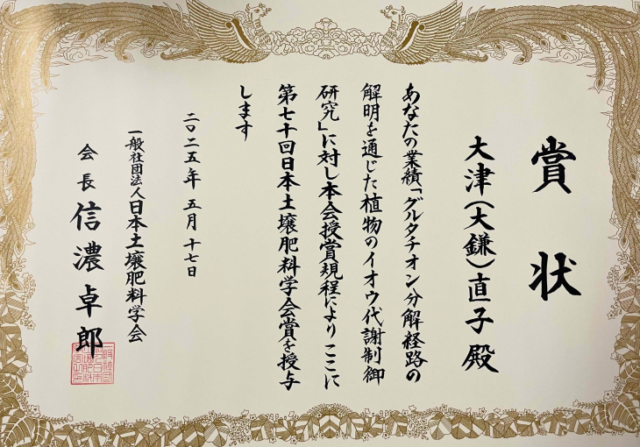 賞状
大津(大鎌)直子殿
あなたの業績「グルタチオン分解経路の
解明を通じた植物のイオウ代謝制御
研究」に対し本会授賞規程によりここに
第七十回日本土壌肥料学会賞を授与
します
二〇二五年五月十七日
一般社団法人日本土壌肥料学会
会長 信濃卓郎